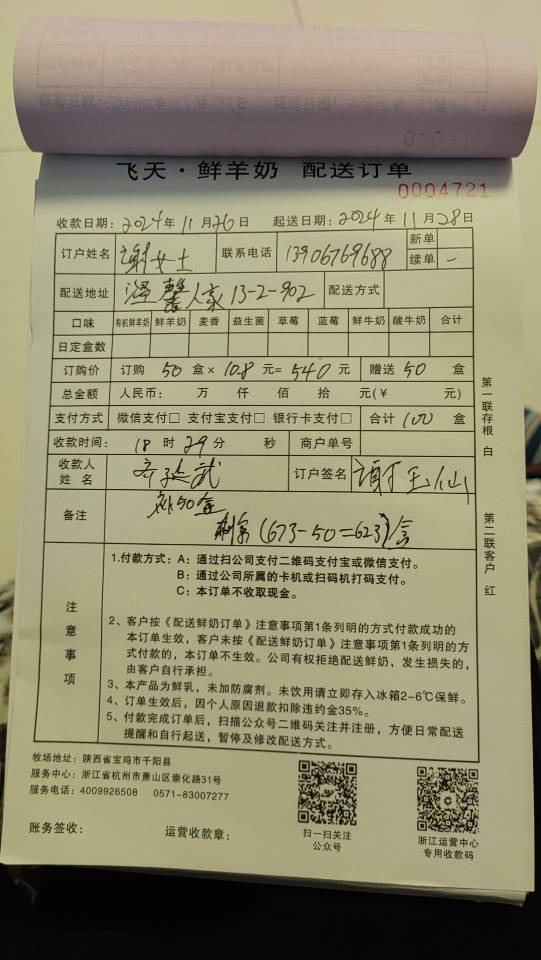 飞天·鲜羊奶 配送订单
0004721
收款日期：2024年11月26日 起送日期：2024年11月28日
订户姓名 谢女士 联系电话 13906769688 新单
续单 一
配送地址 温馨人家13-2-902 配送方式
口味 有机鲜羊奶 鲜羊奶 麦香 益生菌 草莓 蓝莓 鲜牛奶 酸牛奶 合计
日定盒数
订购价 订购 50 盒×10.8元=540元 赠送50盒
总金额 人民币： 万 仟 佰 拾 元(￥ 元)
支付方式 微信支付□ 支付宝支付□ 银行卡支付□ 合计100盒
收款时间： 18时29分 秒 商户单号
收款人姓名 订户签名 谢玉仙
备注 50盒
剩余(673-50=623)盒
第一联存根 白
第二联客户 红
注意事项
1.付款方式：A：通过扫公司支付二维码支付宝或微信支付。
B：通过公司所属的卡机或扫码机打码支付。
C：本订单不收取现金。
2、客户按《配送鲜奶订单》注意事项第1条列明的方式付款成功的
本订单生效，客户未按《配送鲜奶订单》注意事项第1条列明的方
式付款的，本订单不生效。公司有权拒绝配送鲜奶，发生损失的，
由客户自行承担。
3、本产品为鲜乳，未加防腐剂。未饮用请立即存入冰箱2-6℃保鲜。
4、订单生效后，因个人原因退款扣除违约金35%。
5、付款完成订单后，扫描公众号二维码关注并注册，方便日常配送
提醒和自行起送，暂停及修改配送方式。
牧场地址：陕西省宝鸡市千阳县
服务中心：浙江省杭州市萧山区崇化路31号
服务电话：4009926508 0571-83007277
账务签收： 运营收款章：
扫一扫关注
公众号
浙江运营中心
专用收款码